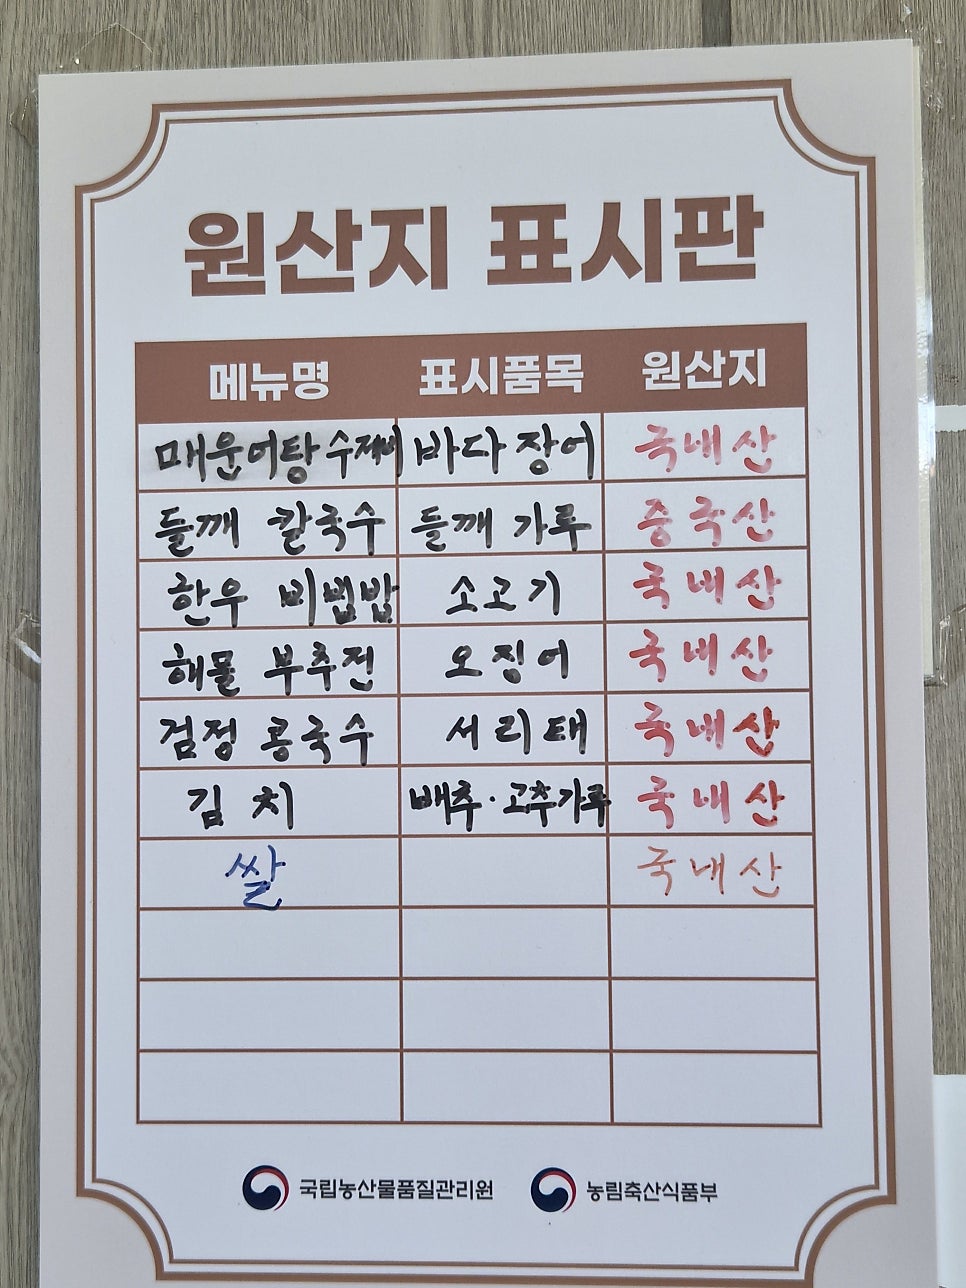 원산지 표시판
메뉴명 표시품목 원산지
매운어탕 수제비 바다 장어 국내산
들깨 칼국수 들깨 가루 중국산
한우 비빔밥 소고기 국내산
해물 부추전 오징어 국내산
검정 콩국수 서리태 국내산
김치 배추·고추가루 국내산
쌀 국내산
국립농산물품질관리원 농림축산식품부